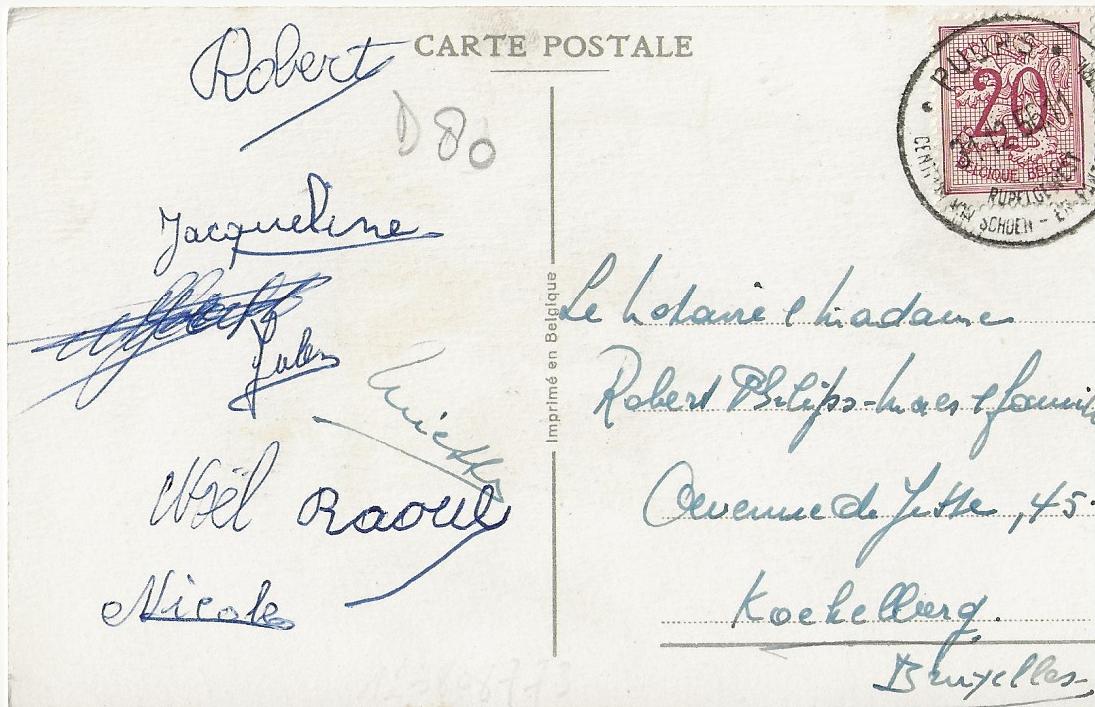 CARTE POSTALE
Robert
D 80
Jacqueline
Jules
Noël Raoul
Nicole
Imprimé en Belgique
PUURS
20
31-12 56
BELGIQUE BELGIE
RUPELGEWEST
SCHOEN - EN
Le Notaire & Madame
Robert Philips-Maes & famille
Avenue de Jette, 45.
Koekelberg.
Bruxelles